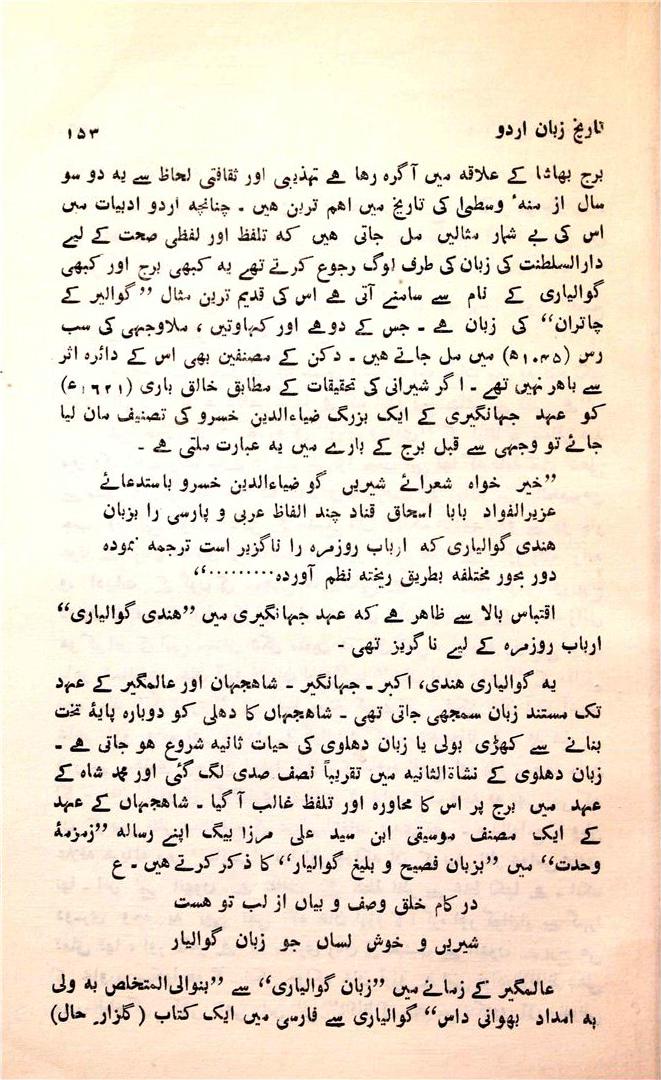 تاریخ زبان اردو ۱۵۳
برج بھاشا کے علاقہ میں آگرہ رہا ہے تہذیبی اور ثقافتی لحاظ سے یہ دو سو
سال از منہٴ وسطیٰ کی تاریخ میں اہم ترین ہیں ۔ چنانچہ اردو ادبیات میں
اس کی بے شمار مثالیں مل جاتی ہیں کہ تلفظ اور لفظی صحت کے لیے
دارالسلطنت کی زبان کی طرف لوگ رجوع کرتے تھے یہ کبھی برج اور کبھی
گوالیاری کے نام سے سامنے آتی ہے اس کی قدیم ترین مثال ”گوالیر کے
چاتران“ کی زبان ہے ۔ جس کے دوہے اور کہاوتیں ، ملاوجہی کی سب
رس (۱۰۴۵ھ) میں مل جاتے ہیں ۔ دکن کے مصنفین بھی اس کے دائرہ اثر
سے باہر نہیں تھے ۔ اگر شیرانی کی تحقیقات کے مطابق خالق باری (۱۶۲۱ع)
کو عہد جہانگیری کے ایک بزرگ ضیاءالدین خسرو کی تصنیف مان لیا
جائے تو وجہی سے قبل برج کے بارے میں یہ عبارت ملتی ہے ۔
”خیر خواہ شعرائے شیریں گو ضیاءالدین خسرو باستدعائے
عزیرالفواد بابا اسحاق قناد چند الفاظ عربی و پارسی را بزبان
ہندی گوالیاری کہ ارباب روزمرہ را ناگزیر است ترجمہ نمودہ
دور بحور مختلفہ بطریق ریختہ نظم آوردہ..........“
اقتباس بالا سے ظاہر ہے کہ عہد جہانگیری میں ”ہندی گوالیاری“
ارباب روزمرہ کے لیے ناگریز تھی ۔
یہ گوالیاری ہندی، اکبر ۔ جہانگیر ۔ شاہجہان اور عالمگیر کے عہد
تک مستند زبان سمجھی جاتی تھی ۔ شاہجہاں کا دہلی کو دوبارہ پایۂ تخت
بنانے سے کھڑی بولی یا زبان دہلوی کی حیات ثانیہ شروع ہو جاتی ہے ۔
زبان دہلوی کے نشاۃالثانیہ میں تقریباً نصف صدی لگ گئی اور محمد شاہ کے
عہد میں برج پر اس کا محاورہ اور تلفظ غالب آ گیا ۔ شاہجہاں کے عہد
کے ایک مصنف موسیقی ابن سید علی مرزا بیگ اپنے رسالہ ”زمزمۂ
وحدت“ میں ”بزبان فصیح و بلیغ گوالیار“ کا ذکر کرتے ہیں ۔ ع
در کام خلق وصف و بیاں از لب تو ہست
شیریں و خوش لساں جو زبان گوالیار
عالمگیر کے زمانے میں ”زبان گوالیاری“ سے ”بنوالی المتخلص بہ ولی
بہ امداد بھوانی داس“ گوالیاری سے فارسی میں ایک کتاب (گلزار حال)